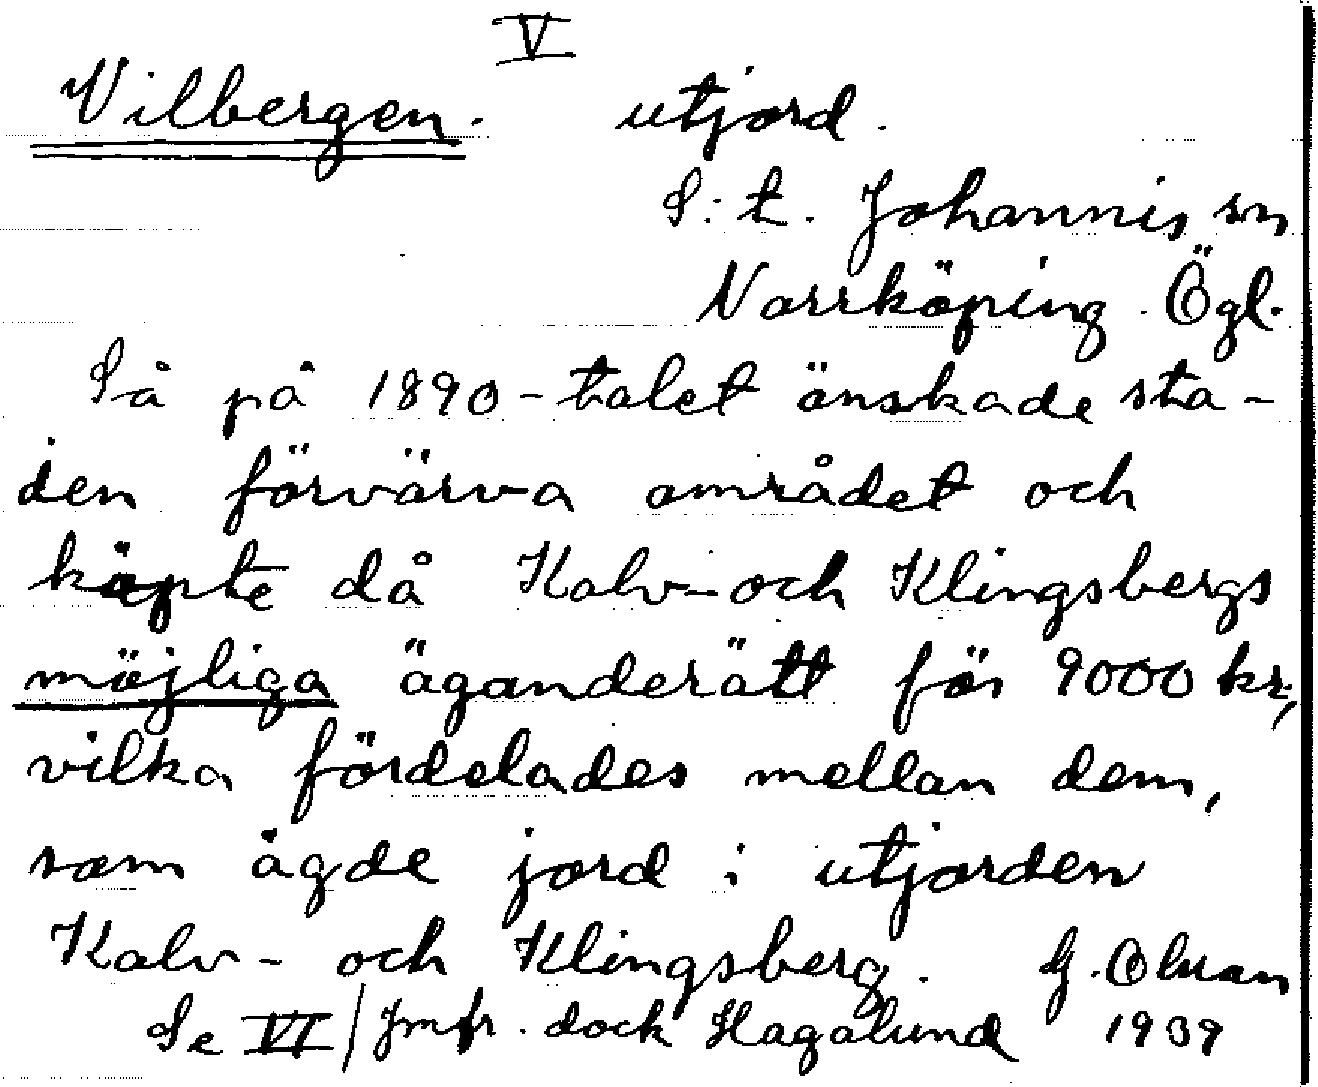 V
Vilbergen. utjord.
S:t. Johannis sn
Norrköping Ögl.
Så på 1890-talet önskade sta-
den förvärva området och
köpte då Kalv- och Klingsbergs
möjliga äganderätt för 9000 kr,
vilka fördelades mellan dem,
som ägde jord i utjorden
Kalv- och Klingsberg. G. Olsson
Se VI / Jmfr. dock Hagalund 1939